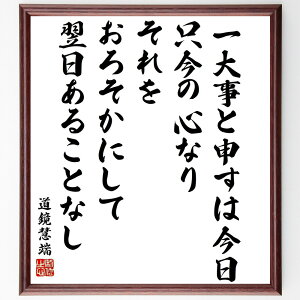 一大事と申すは今日
只今の心なり
それを
おろそかにして
翌日あることなし
道鏡慧端